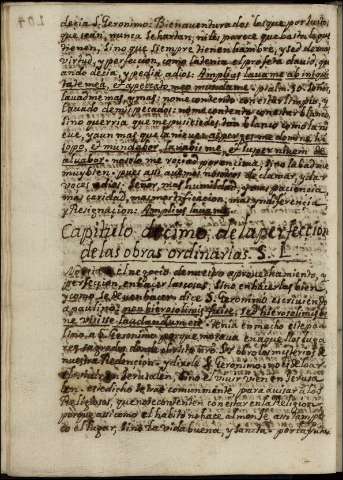 decia S. Geronimo: Bienaventurados los que por justos
que sean, nunca se hartan, ni les parece que basta lo que
tienen, sino que siempre tienen hambre, y sed de mas
virtud, y perfeccion, como la tenia el profeta david, qu
ando decia, y pedia a dios: Amplius lava me ab iniqui
tate mea, et a peccato meo munda me. psalm. 50. Señor,
lavadme mas, y mas: no me contento con estar limpio, y
lavado de mis pecados: no me contento con estar blanco,
sino querria que me pusiesedes tan blanco como la ni
eve, y aun mas que la nieve: asperges me domine hi
sopo, et mundabor, lavabis me, et super nivem de
albabor. no solo me rocio por encima; sino labadme
muy bien. pues asi avemos nosotros de clamar, y dar
voces a dios: Señor, mas humildad, y mas paciencia
mas caridad, mas mortificacion, mas yndiferencia
y Resignacion: Amplius lava me.
Capitulo decimo, de la perfeccion
de las obras ordinarias. S. I.
el negocio de nuestro aprovechamiento, y
perfeccion, en hacer las cosas, sino en hacerlas bien
y como se deven hacer dice S. Geronimo escriviendo
a paulino: non hierosolimis fuisse, sed hierosolimis be
ne vixisse laudandum est. tenia en mucho este pa
lino, a S. Geronimo, porque morava en aquellos luga
res sagrados, donde christo obro los misterios de
nuestra Redencion: y dicele S. Geronimo: no es de loar
el estar en Jerusalen, sino el vivir vien en Jerusa
len. este dicho se trae comunmente para avisar a los
Religiosos, que no se contenten con estar en la Religion
porque asi como el habito no hace al monge, asi tampo
co el lugar, sino la vida buena, y sancta.